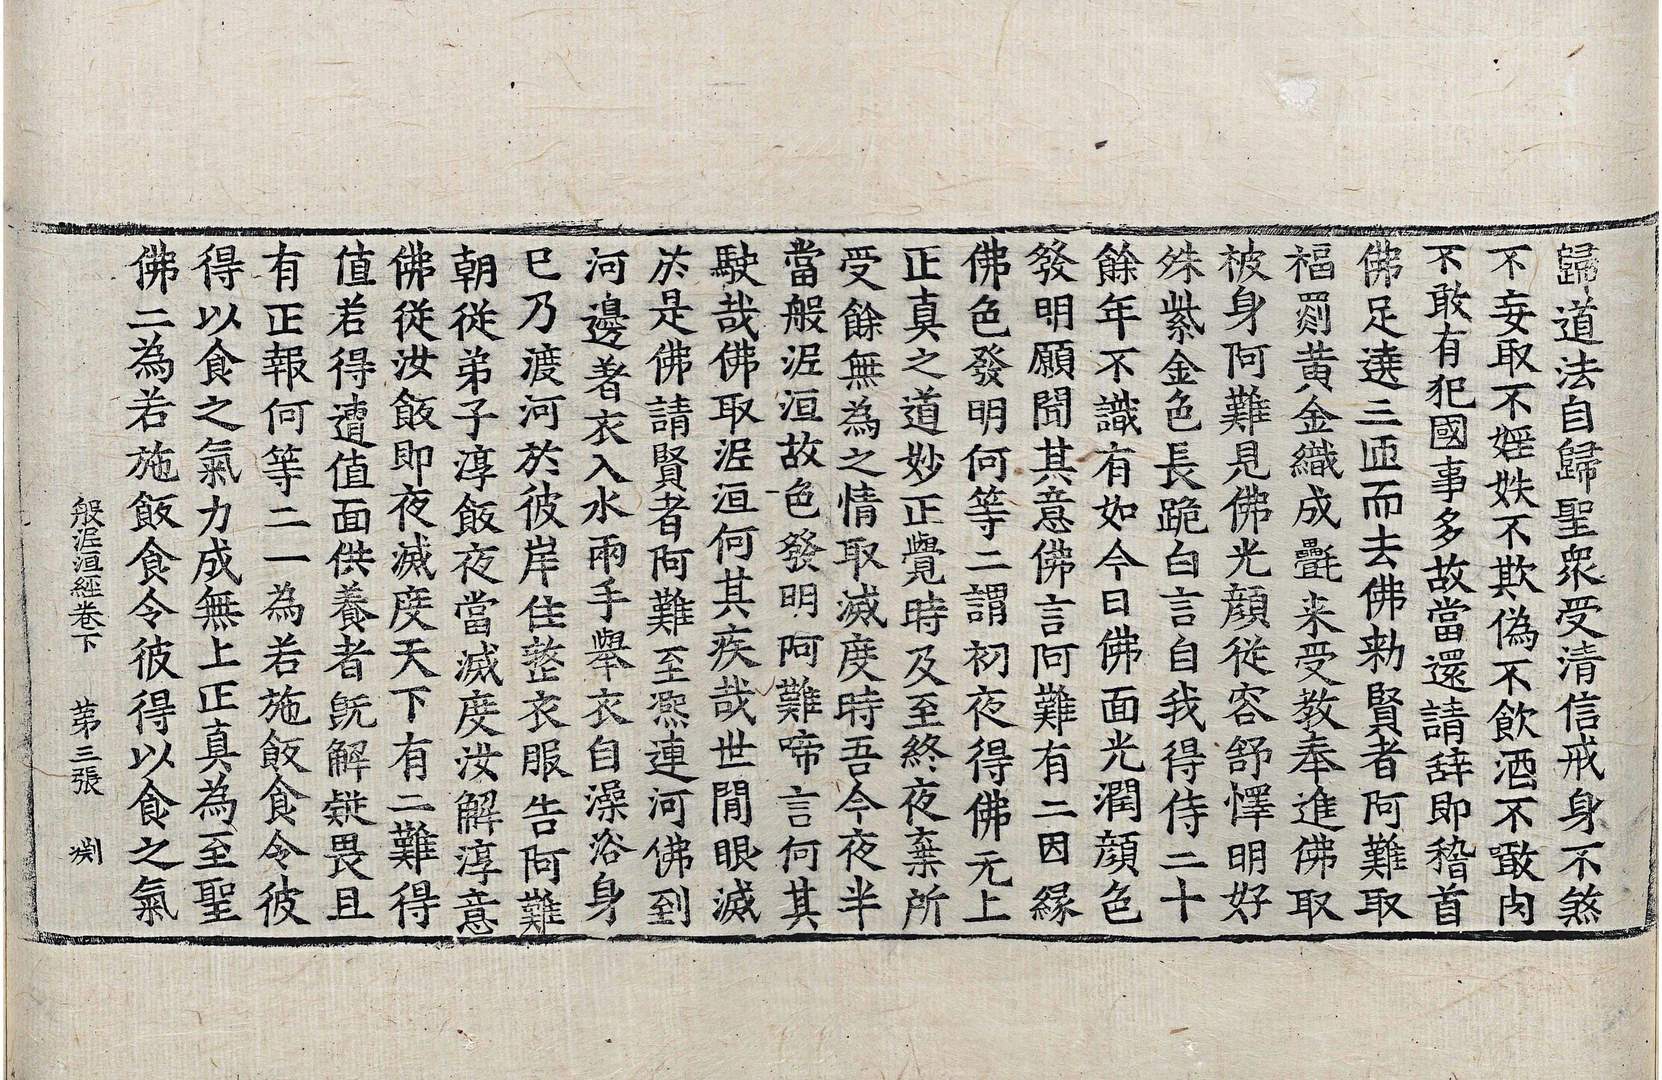 歸道法自歸聖衆受清信戒身不煞
不妄取不婬妷不欺偽不飲酒不噉肉
不敢有犯國事多故當還請辞即稽首
佛足遶三匝而去佛勅賢者阿難取
福罽黄金織成㲲来受教奉進佛取
被身阿難見佛光顔從容舒懌明好
殊紫金色長跪白言自我得侍二十
餘年不識有如今日佛面光潤顔色
發明願聞其意佛言阿難有二因緣
佛色發明何等二謂初夜得佛无上
正真之道妙正覺時及至終夜棄所
受餘無為之情取滅度時吾今夜半
當般泥洹故色發明阿難啼言何其
駛哉佛取泥洹何其疾哉世閒眼滅
於是佛請賢者阿難至凞連河佛到
河邊著衣入水兩手舉衣自澡浴身
已乃渡河於彼岸住整衣服告阿難
朝從弟子淳飯夜當滅度汝解淳意
佛從汝飯即夜滅度天下有二難得
值若得遭值面供養者旣解疑畏且
有正報何等二一為若施飯食令彼
得以食之氣力成無上正真為至聖
佛二為若施飯食令彼得以食之氣
般泥洹經卷下 第三張 渕